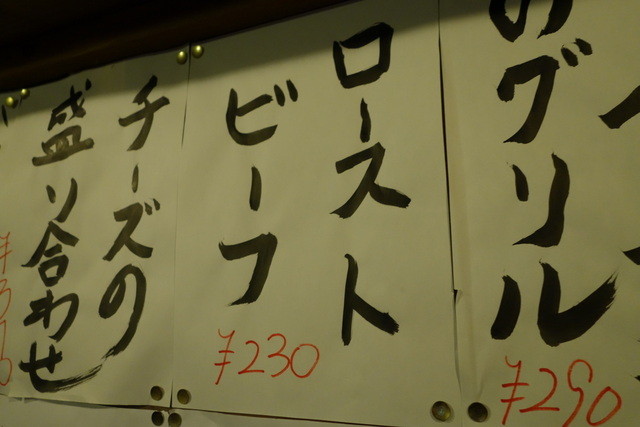 のグリル
¥290
ロースト
ビーフ
¥230
チーズの
盛り合わせ